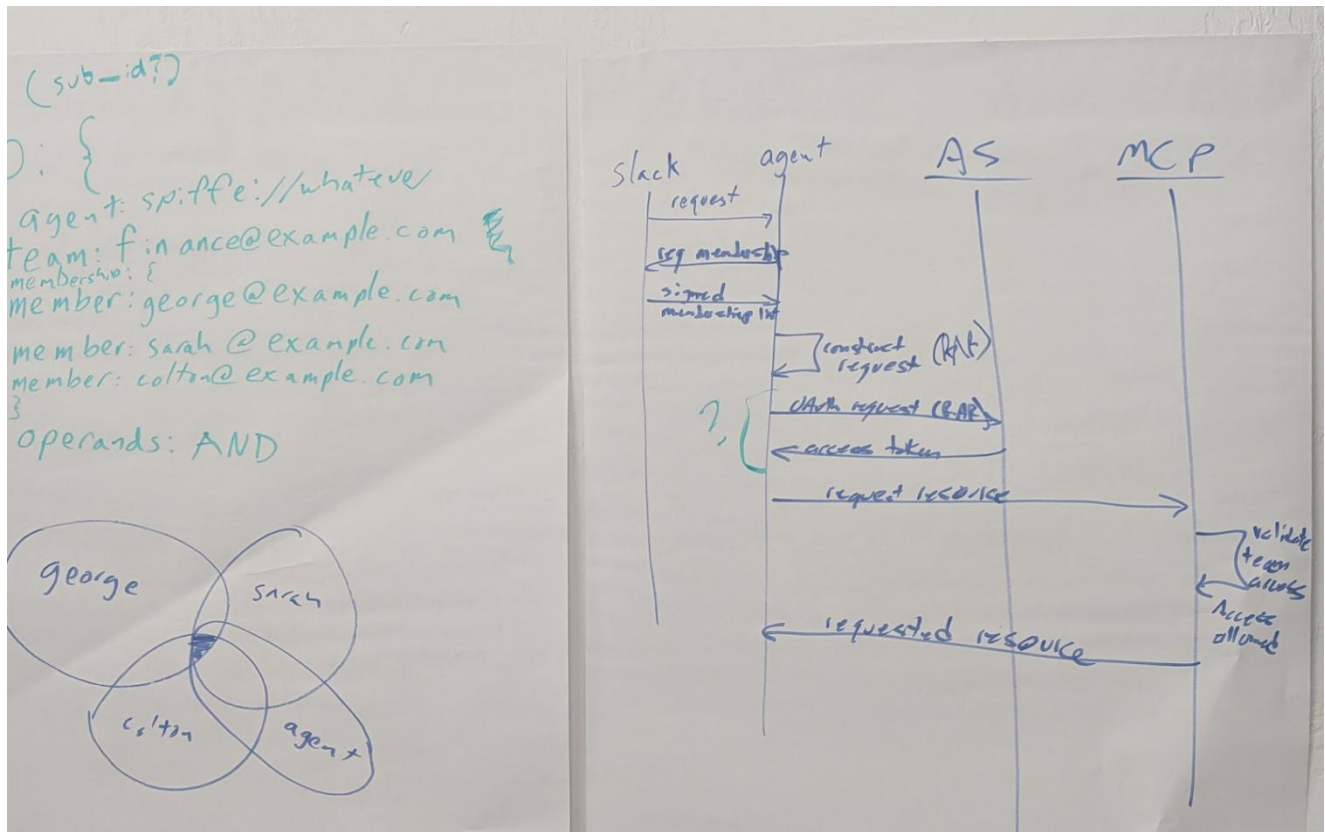 (sub_id?)
: {
agent: spiffe://whateve
team: finance@example.com
membership: {
member: george@example.com
member: sarah@example.com
member: colton@example.com
}
operands: AND
george
sarah
colton
agent
slack
agent
AS
MCP
request
req membership
signed
membership list
construct
request
?
OAuth request (RAR)
access token
request resource
validate
team
access
Access
allowed
requested resource